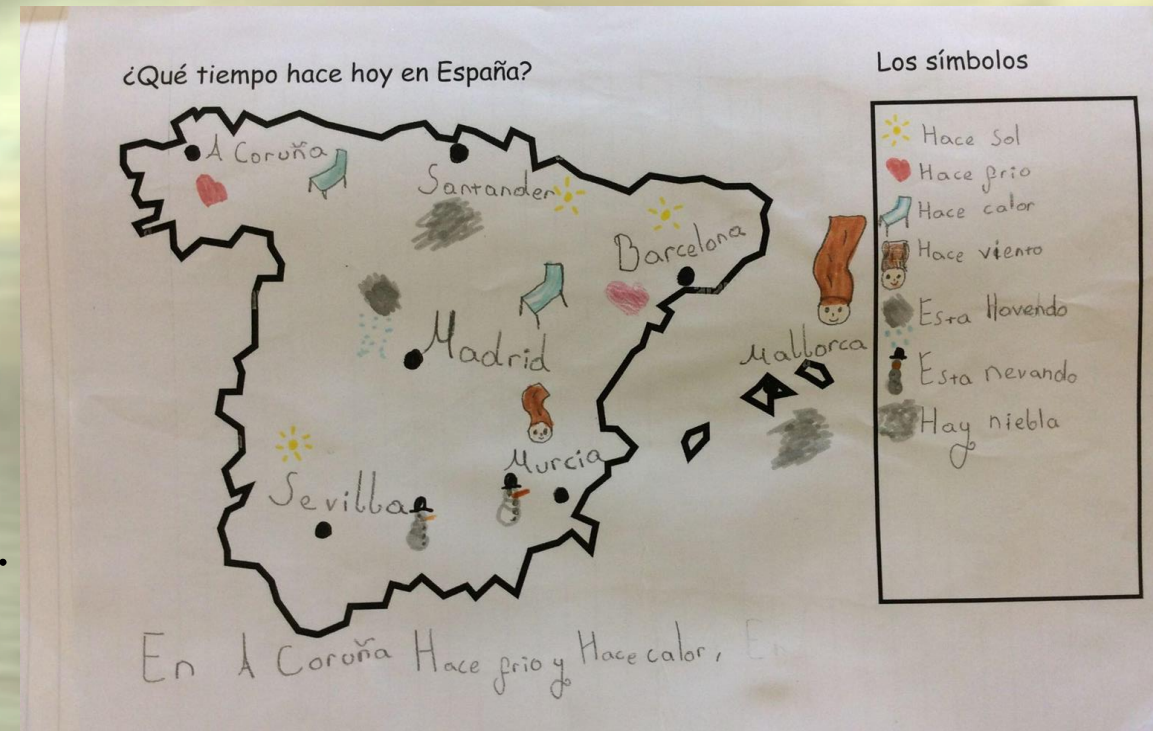 ¿Qué tiempo hace hoy en España?
Los símbolos
A Coruña
Santander
Barcelona
Madrid
Mallorca
Murcia
Sevilla
Hace sol
Hace frio
Hace calor
Hace viento
Esta llovendo
Esta nevando
Hay niebla
En A Coruña Hace frio y Hace calor, En